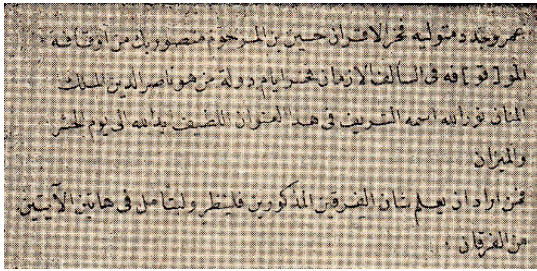 عمر وجدد متوليه فخر الاقران حسين بن المرحوم منصور بك من أوقافه
المو [ قو ] فه فى السالف الازمان عمر ايام دولة من هو ناصر الدين الملك
المنان نور الله اسمه الشريف فى هذا العنوان اللطيف بدأ لله الى يوم الحشر
والميزان
فمن اراد ان يعلم بنيان الفرقين المذكورين فلينظر وليتأمل فى هاتين الآيتين
من الفرقان .